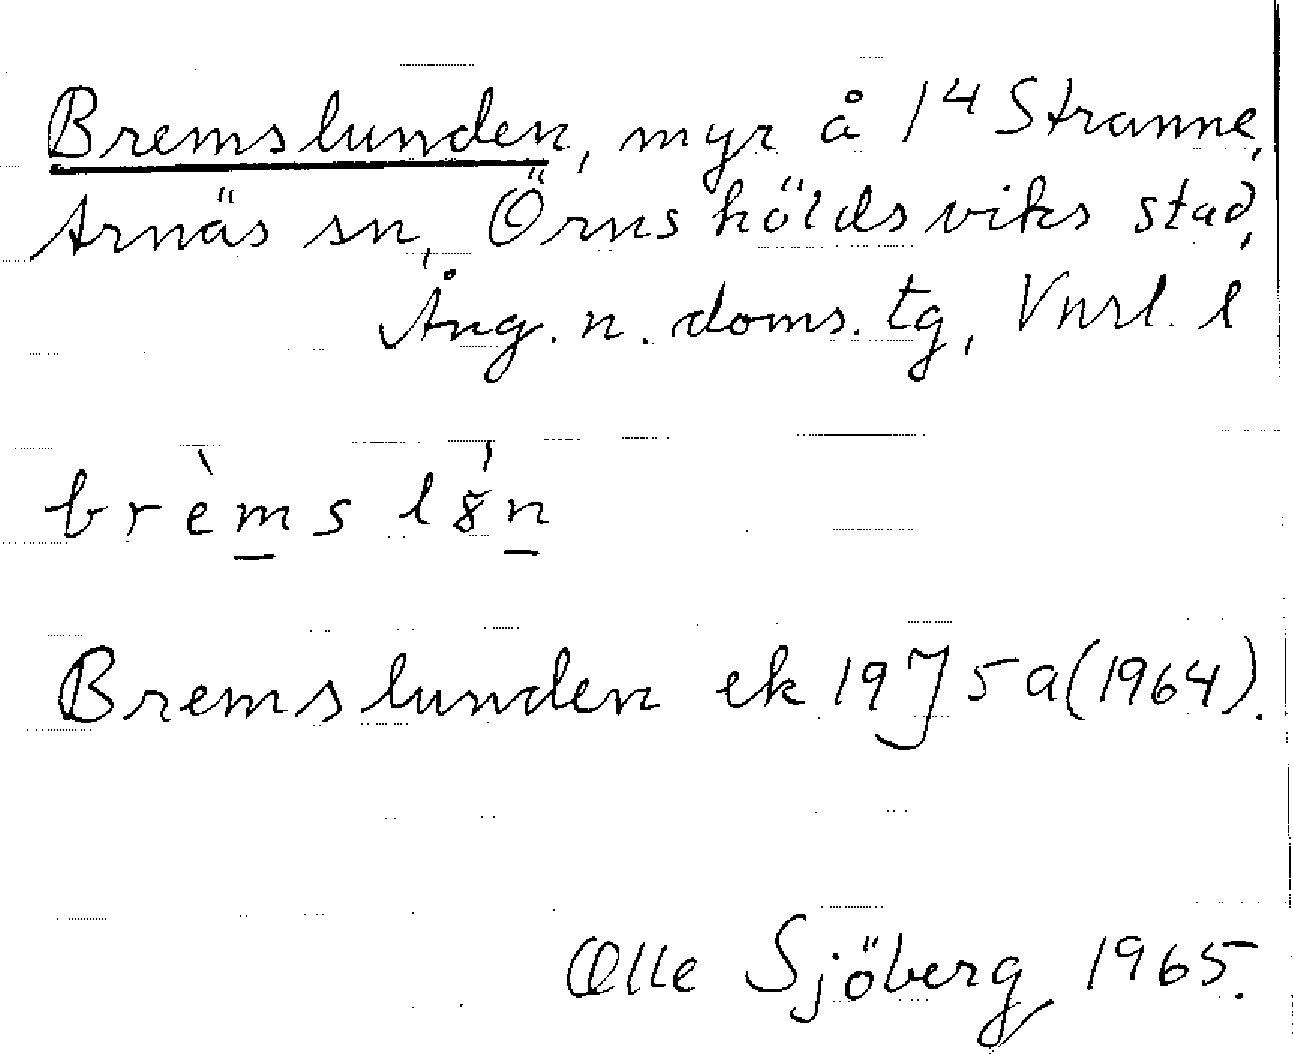 Bremslunden, myr å 14 Stranne,
Arnäs sn, Örnsköldsviks stad,
Ång. n. doms. tg, Vnrl. l
brèms l8n
Bremslunden ek 19J5a(1964).
Olle Sjöberg 1965.